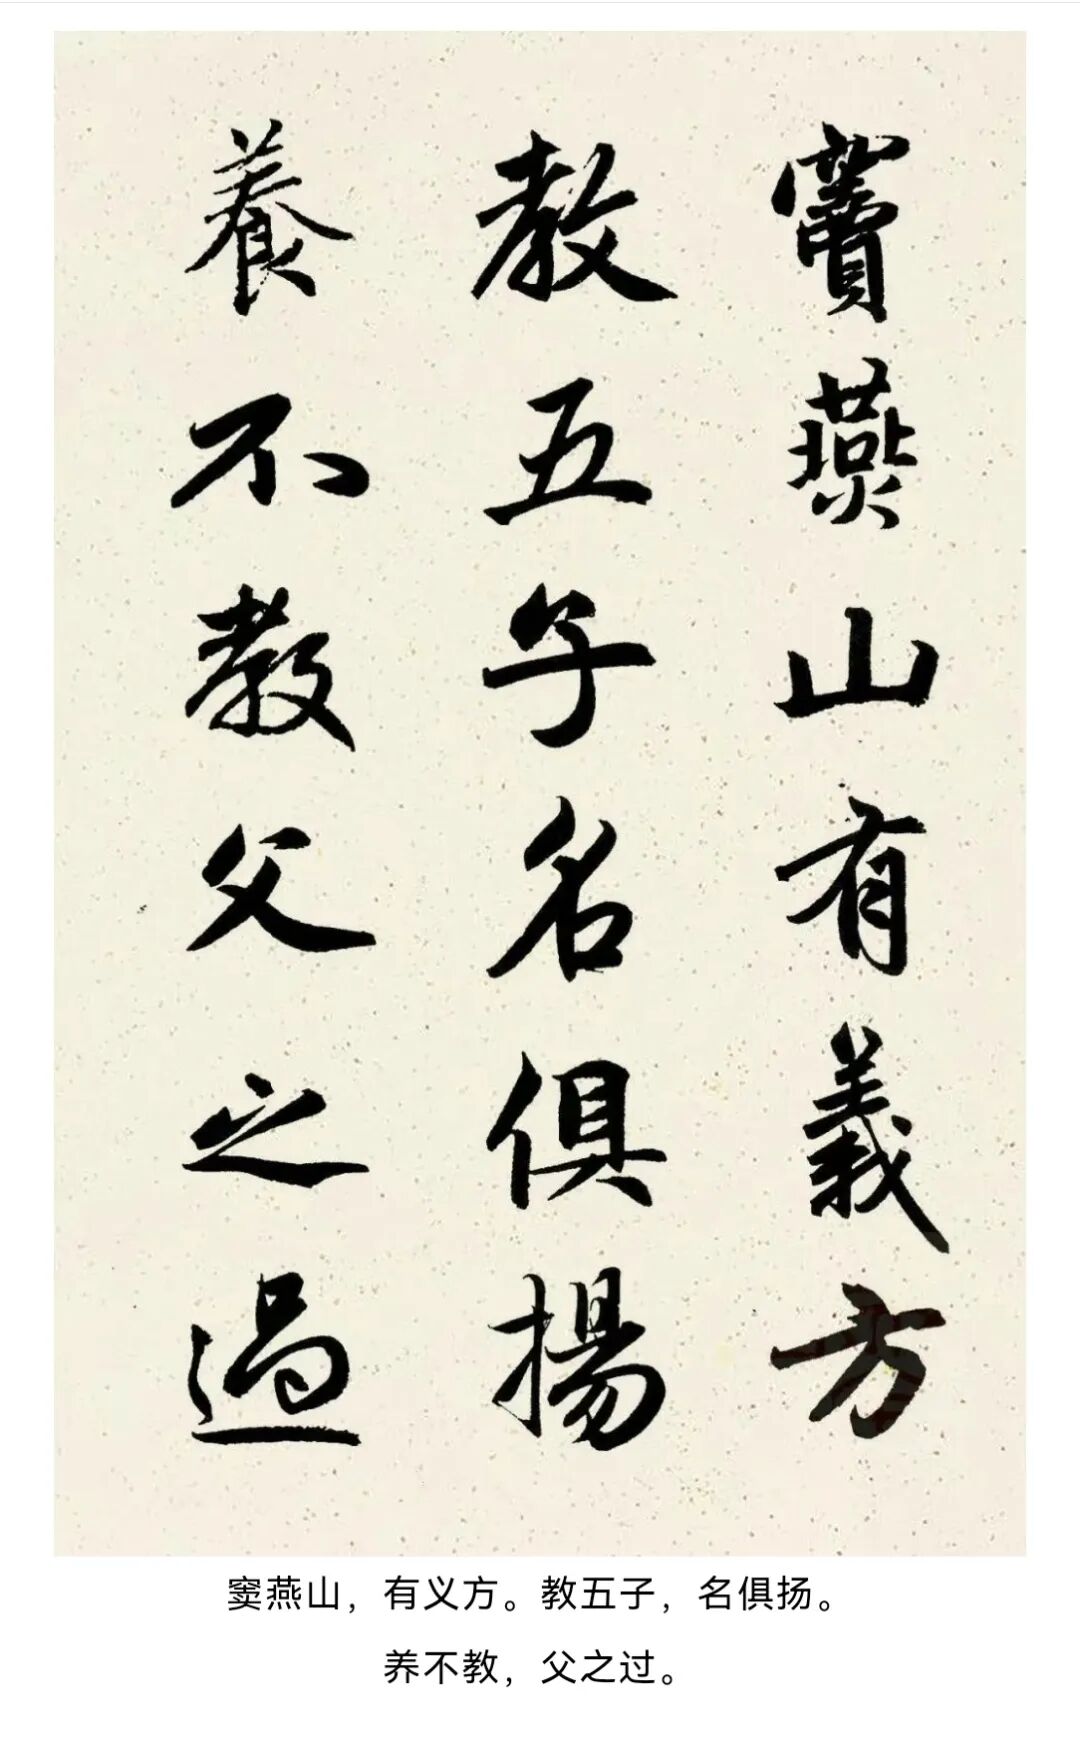 竇燕山有義方
教五子名俱揚
養不教父之過
窦燕山，有义方。教五子，名俱扬。
养不教，父之过。